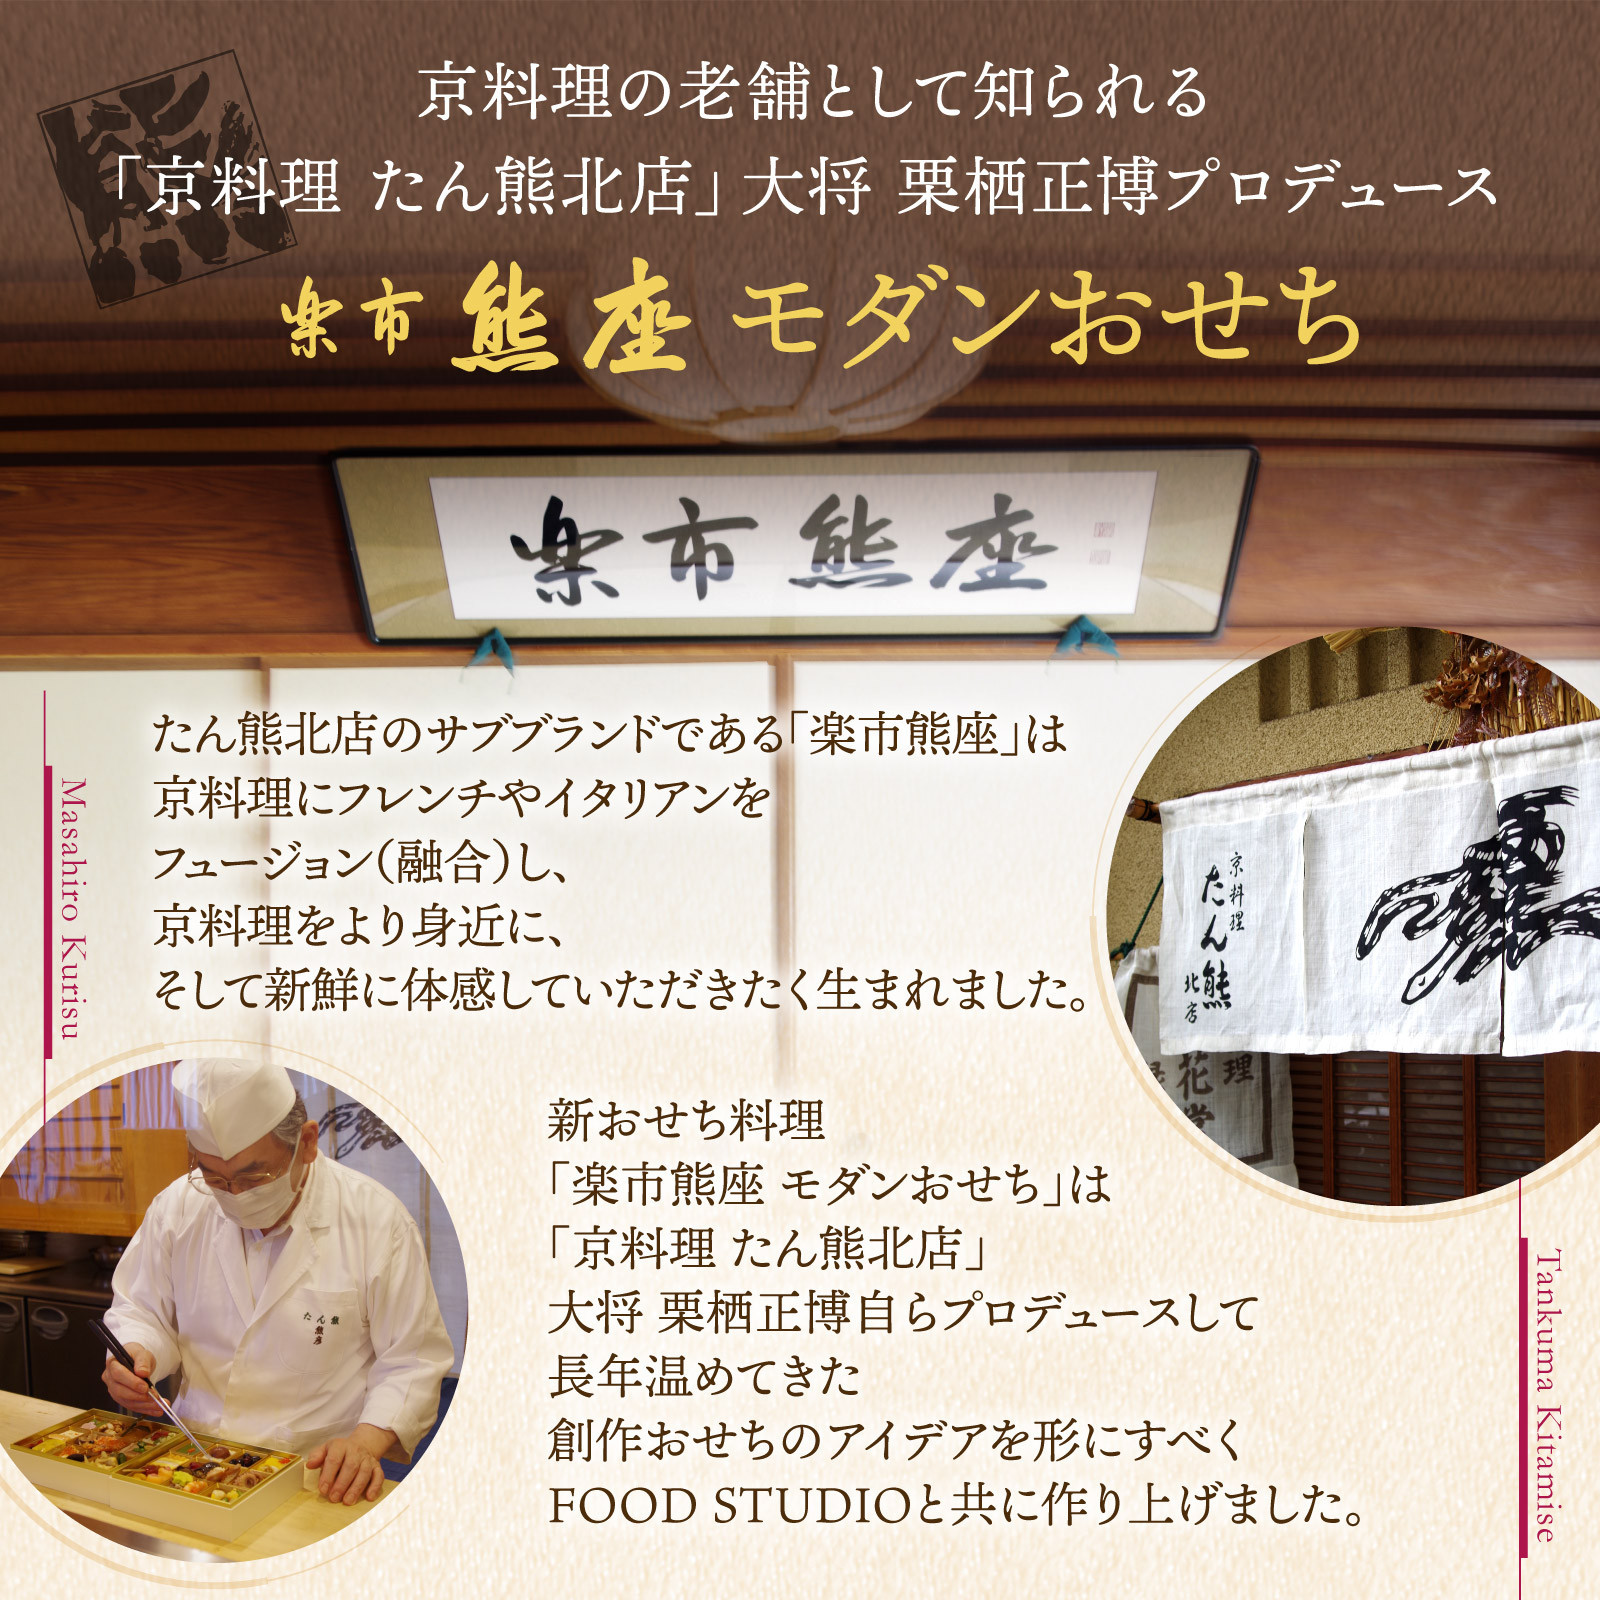 京料理の老舗として知られる
「京料理 たん熊北店」大将 栗栖正博プロデュース
楽市 熊座 モダンおせち
楽市熊座
たん熊北店のサブブランドである「楽市熊座」は
京料理にフレンチやイタリアンを
フュージョン(融合)し、
京料理をより身近に、
そして新鮮に体感していただきたく生まれました。
Masahiro Kurisu
京料理
たん熊
北店
理
花堂
新おせち料理
「楽市熊座 モダンおせち」は
「京料理 たん熊北店」
大将 栗栖正博自らプロデュースして
長年温めてきた
創作おせちのアイデアを形にすべく
FOOD STUDIOと共に作り上げました。
Tankuma Kitamise